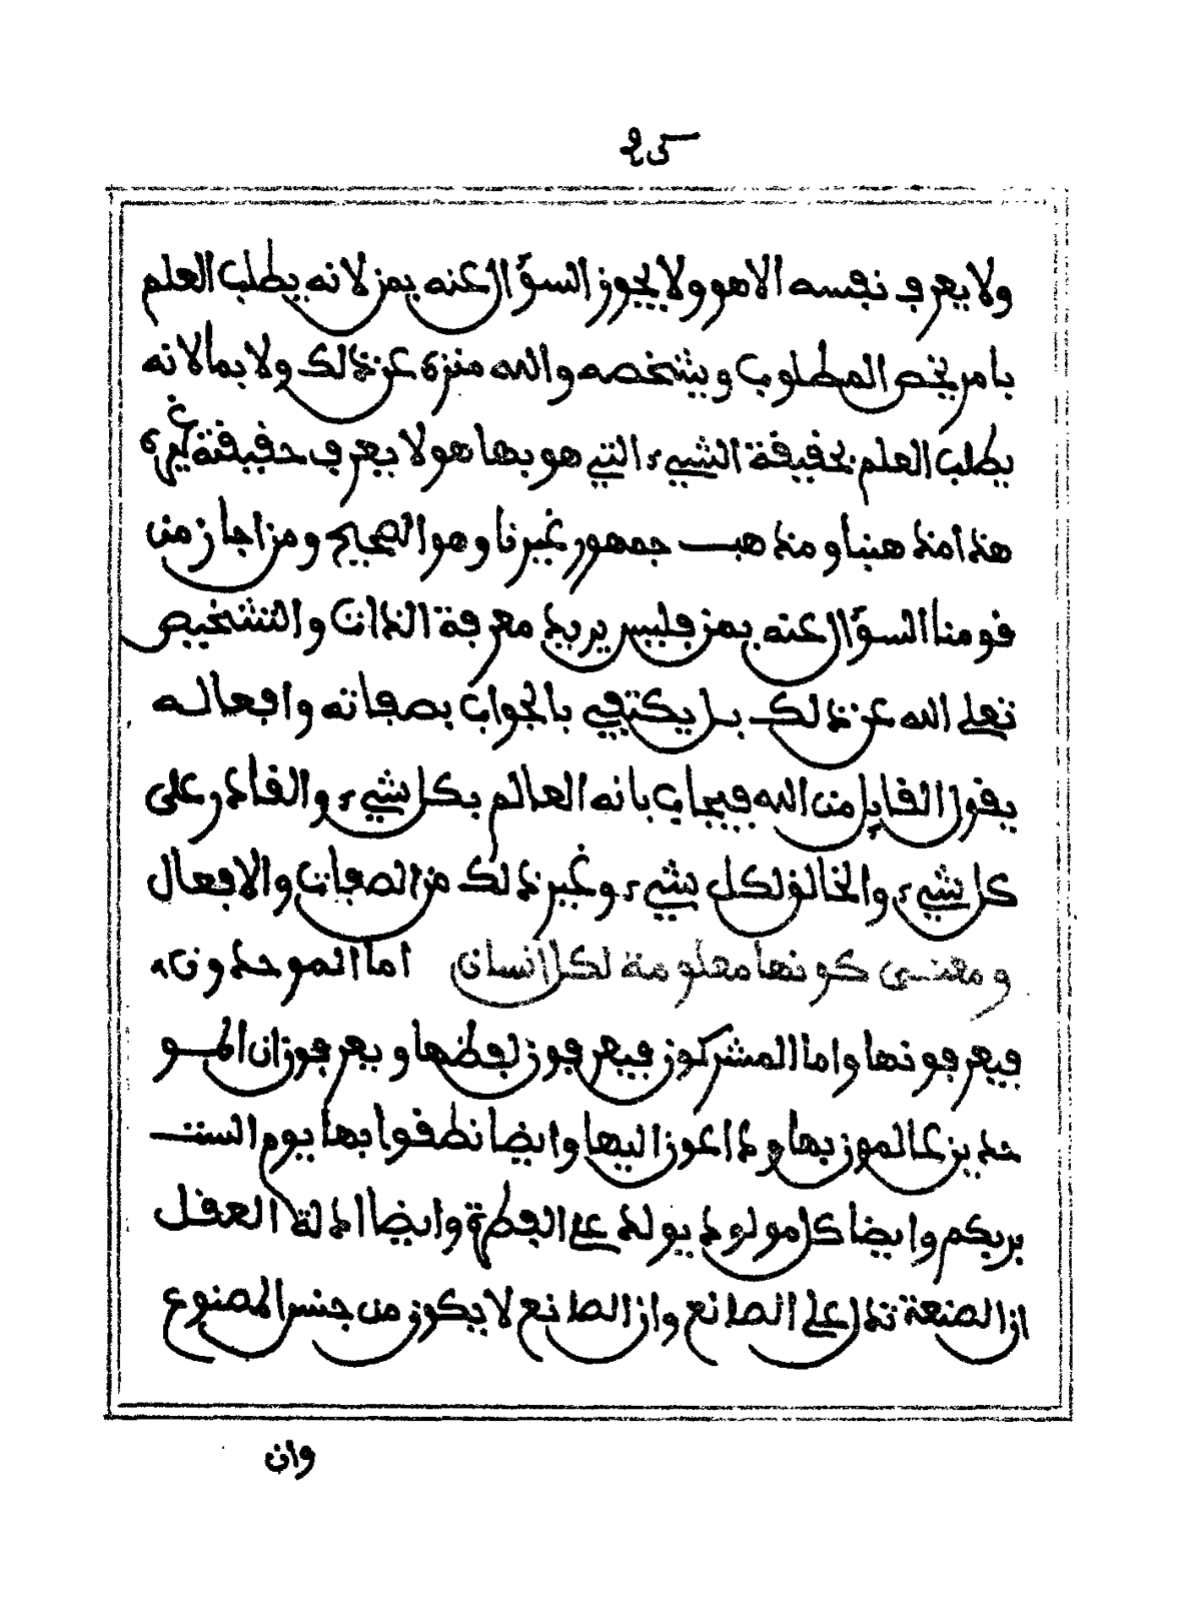 ولا يعرف نفسه الا هو ولا يجوز السؤال عنه بمن لانه يطلب العلم
بامر يخص المطلوب ويشخصه والله منزه عن ذالك ولا بما لانه
يطلب العلم بحقيقة الشيء التي هو بها هو لا يعرف حقيقته غيره
هذا مذهبنا ومذهب جمهور غيرنا وهو الصحيح ومن اجاز من
قومنا السؤال عنه بمن فليس يريد معرفة الذات والتشخيص
تعلى الله عن ذالك بل يكتفي بالجواب بصفاته وافعاله
يقول القايل من الله فيجاب بانه العالم بكل شيء والقادر على
كل شيء والخالق لكل شيء وغير ذالك من الصفات والافعال
ومعنى كونها معلومة لكل انسان اما الموحدون
فيعرفونها واما المشركون فيعرفون لفظها ويعرفون ان المو
حدين عالمون بها وداعون اليها وايضا نطقوا بها يوم الست
بربكم وايضا كل مولود يولد على الفطرة وايضا ادلة العقل
ان الصنعة تدل على الصانع وان الصانع لا يكون من جنس المصنوع
وان